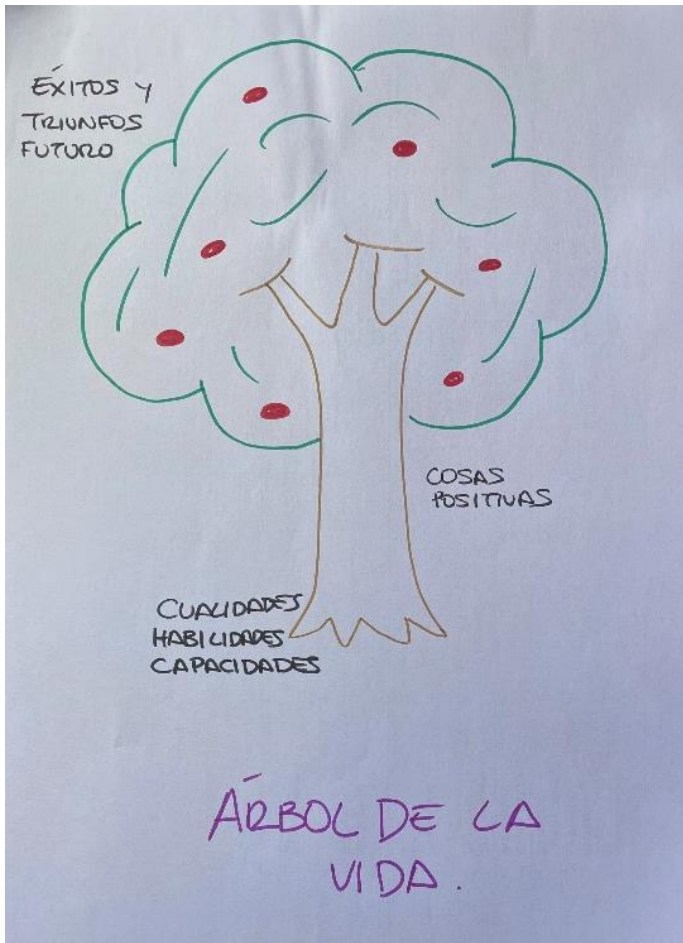 ÉXITOS Y
TRIUNFOS
FUTURO
COSAS
POSITIVAS
CUALIDADES
HABILIDADES
CAPACIDADES
ÁRBOL DE LA
VIDA.